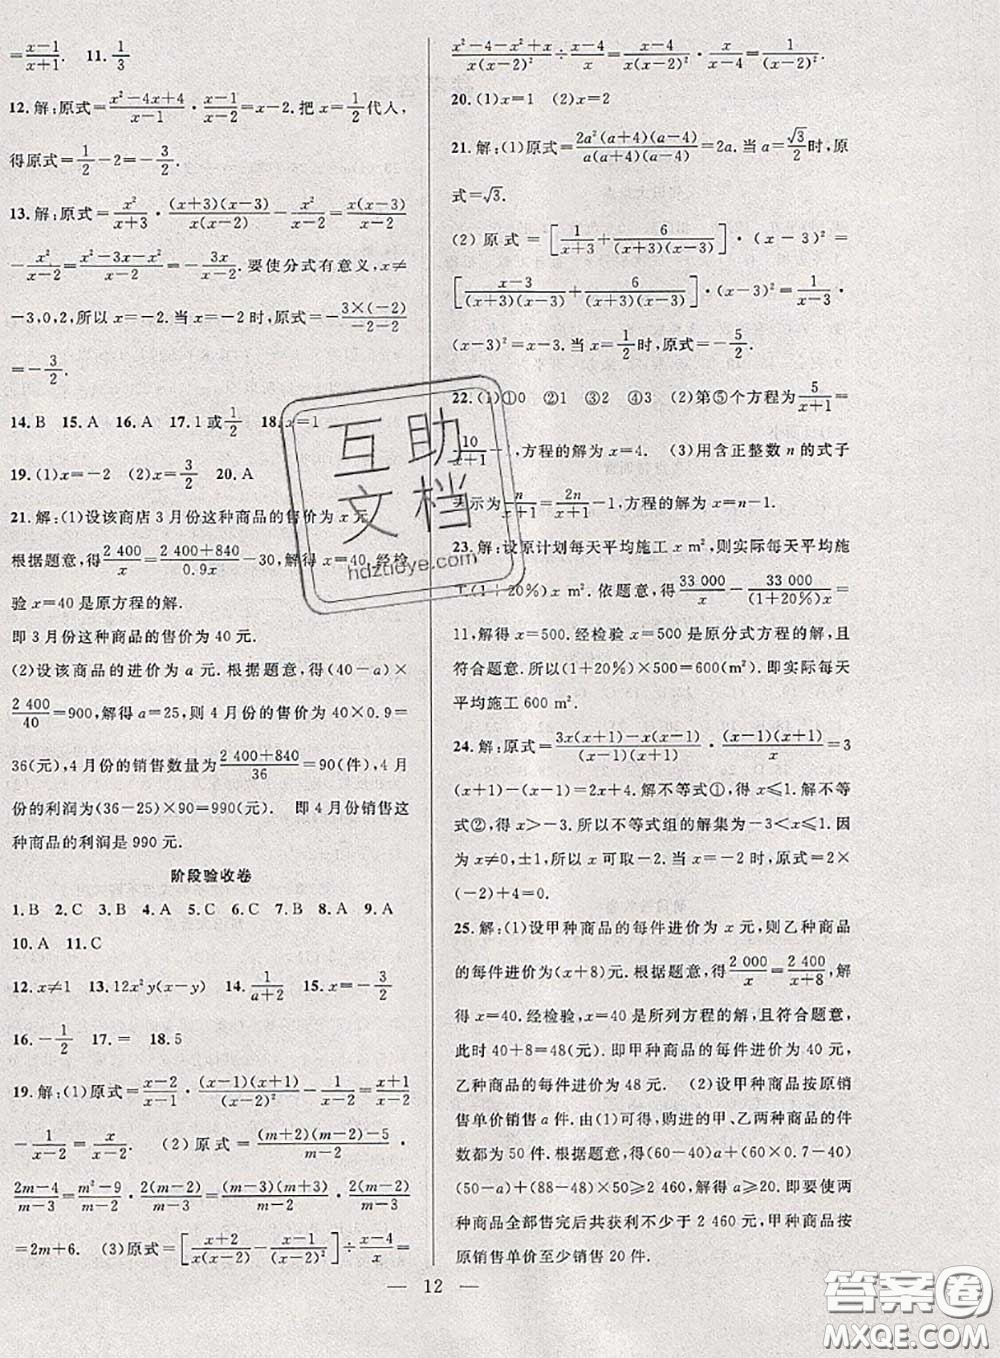 =\frac{x-1}{x+1}. 11. \frac{1}{3}
12.解:原式=\frac{x²-4x+4}{x-1}·\frac{x-1}{x-2}=x-2.把 x=\frac{1}{2}代人,
得原式=\frac{1}{2}-2=-\frac{3}{2}.
13.解:原式=\frac{x²}{x+3}·\frac{(x+3)(x-3)}{x(x-2)}-\frac{x²}{x-2}=\frac{x(x-3)}{x-2}
-\frac{x²}{x-2}=\frac{x²-3x-x²}{x-2}=-\frac{3x}{x-2}.要使分式有意义,x≠
-3,0,2,所以 x=-2.当 x=-2时,原式=-\frac{3×(-2)}{-2-2}=
-\frac{3}{2}.
14.B 15.A 16.A 17.1或\frac{1}{2} 18.x=1
19.(1)x=-2 (2)x=\frac{3}{2} 20.A
21.解:(1)设该商店3月份这种商品的售价为 x元.
根据题意,得\frac{2 400}{x}=\frac{2 400+840}{0.9x}-30,解得 x=40,经检
验 x=40是原方程的解.
即3月份这种商品的售价为40元.
(2)设该商品的进价为a元.根据题意,得(40-a)×
\frac{2 400}{40}=900,解得a=25,则4月份的售价为40×0.9=
36(元),4月份的销售数量为\frac{2 400+840}{36}=90(件),4月
份的利润为(36-25)×90=990(元) 即4月份销售这
种商品的利润是990元.
阶段验收卷
1.B 2.C 3.B 4.A 5.A 6.B 7.B 8.A 9.A
10.A 11.C
12.x≠1 13.12x²y(x-y) 14.\frac{1}{a+2} 15.x=-\frac{3}{2}
16.-\frac{1}{2} 17.= 18.5
19.解:(1)原式=\frac{x-2}{x-1}·\frac{(x-1)(x+1)}{(x-2)²}-\frac{1}{x-2}=\frac{x+1}{x-2}
-\frac{1}{x-2}=\frac{x}{x-2}. (2)原式=\frac{(m+2)(m-2)-5}{m-2}·
\frac{2m-4}{m-3}=\frac{m²-9}{m-2}·\frac{2(m-2)}{m-3}=\frac{(m-3)(m+3)}{m-2}·\frac{2(m-2)}{m-3}
=2m+6. (3)原式=[\frac{x+2}{x(x-2)}-\frac{x-1}{(x-2)²}]÷\frac{x-4}{x}=
\frac{x²-4-x²+x}{x(x-2)²}÷\frac{x-4}{x}=\frac{x-4}{x(x-2)²}·\frac{x}{x-4}=\frac{1}{(x-2)²}.
20.(1)x=1 (2)x=2
21.解:(1)原式=\frac{2a²(a+4)(a-4)}{a(a+4)(a-4)}=2a.当a=\frac{√3}{2}时,原
式=√3.
(2)原式=[\frac{1}{x+3}+\frac{6}{(x+3)(x-3)}]·(x-3)²=
[\frac{x-3}{(x+3)(x-3)}+\frac{6}{(x+3)(x-3)}]·(x-3)²=\frac{1}{x-3}·
(x-3)²=x-3.当 x=\frac{1}{2}时,原式=-\frac{5}{2}.
22.(1)①0 ②1 ③2 ④3 (2)第⑤个方程为\frac{5}{x+1}=
\frac{10}{x+1}-1,方程的解为 x=4. (3)用含正整数n的式子
表示为\frac{n}{x+1}=\frac{2n}{x+1}-1,方程的解为 x=n-1.
23.解:设原计划每天平均施工 x m²,则实际每天平均施
工(1+20%)x m².依题意,得\frac{33 000}{x}-\frac{33 000}{(1+20%)x}=
11,解得 x=500.经检验 x=500是原分式方程的解,且
符合题意.所以(1+20%)×500=600(m²).即实际每天
平均施工600 m².
24.解:原式=\frac{3x(x+1)-x(x-1)}{(x-1)(x+1)}·\frac{(x-1)(x+1)}{x}=3
(x+1)-(x-1)=2x+4.解不等式①,得 x≤1.解不等
式②,得 x>-3.所以不等式组的解集为-3<x≤1.因
为 x≠0,±1,所以 x可取-2.当 x=-2时,原式=2×
(-2)+4=0.
25.解:(1)设甲种商品的每件进价为 x元,则乙种商品
的每件进价为(x+8)元.根据题意,得\frac{2 000}{x}=\frac{2 400}{x+8},解
得 x=40.经检验,x=40是所列方程的解,且符合题意,
此时40+8=48(元).即甲种商品的每件进价为40元,
乙种商品的每件进价为48元. (2)设甲种商品按原销
售单价销售a件.由(1)可得,购进的甲、乙两种商品的件
数都为50件.根据题意,得(60-40)a+(60×0.7-40)
(50-a)+(88-48)×50≥2 460,解得a≥20.即要使两
种商品全部售完后共获利不少于2 460元,甲种商品按
原销售单价至少销售20件.
— 12 —
互助
文档
hdzuoye.com
答案圈
MXQE.COM